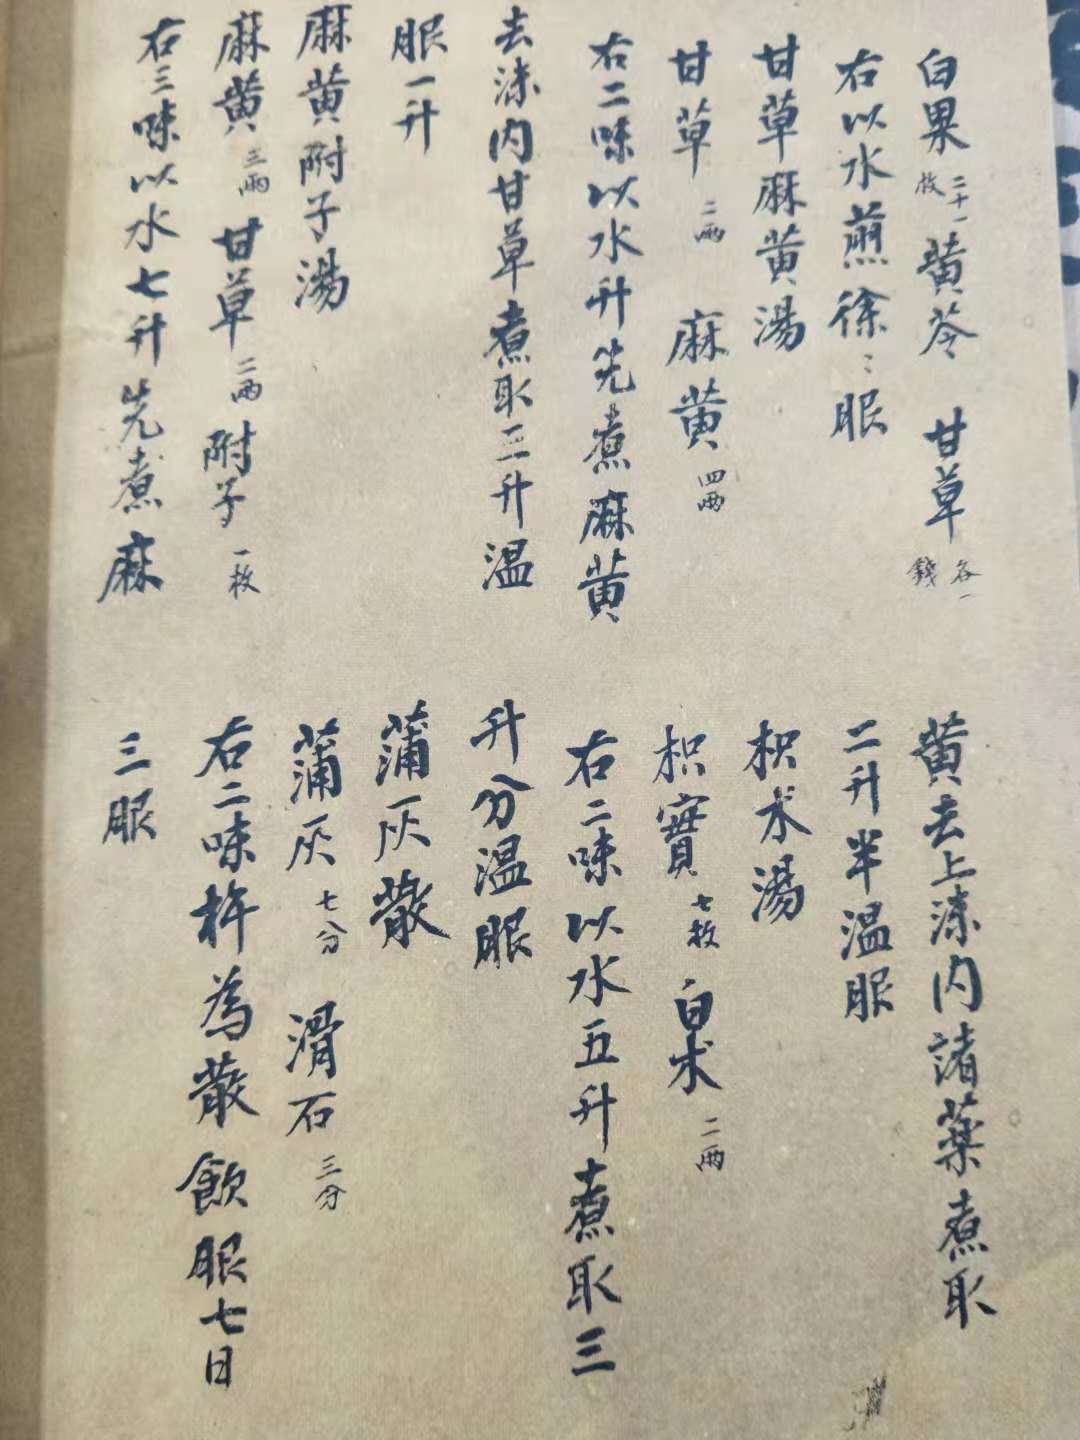 白果二十一枚黄芩 甘草各一錢
右以水煎徐:服
甘草麻黄湯
甘草二兩 麻黄四兩
右二味以水升先煮麻黄
去沫内甘草煮取三升温
服一升
麻黄附子湯
麻黄三兩甘草二兩附子一枚
右三味以水七升先煮麻
黄去上沫内諸藥煮取
二升半温服
枳术湯
枳實七枚白术二兩
右二味以水五升煮取三
升分温服
蒲灰散
蒲灰七分 滑石三分
右二味杵為散飲服七日
三服